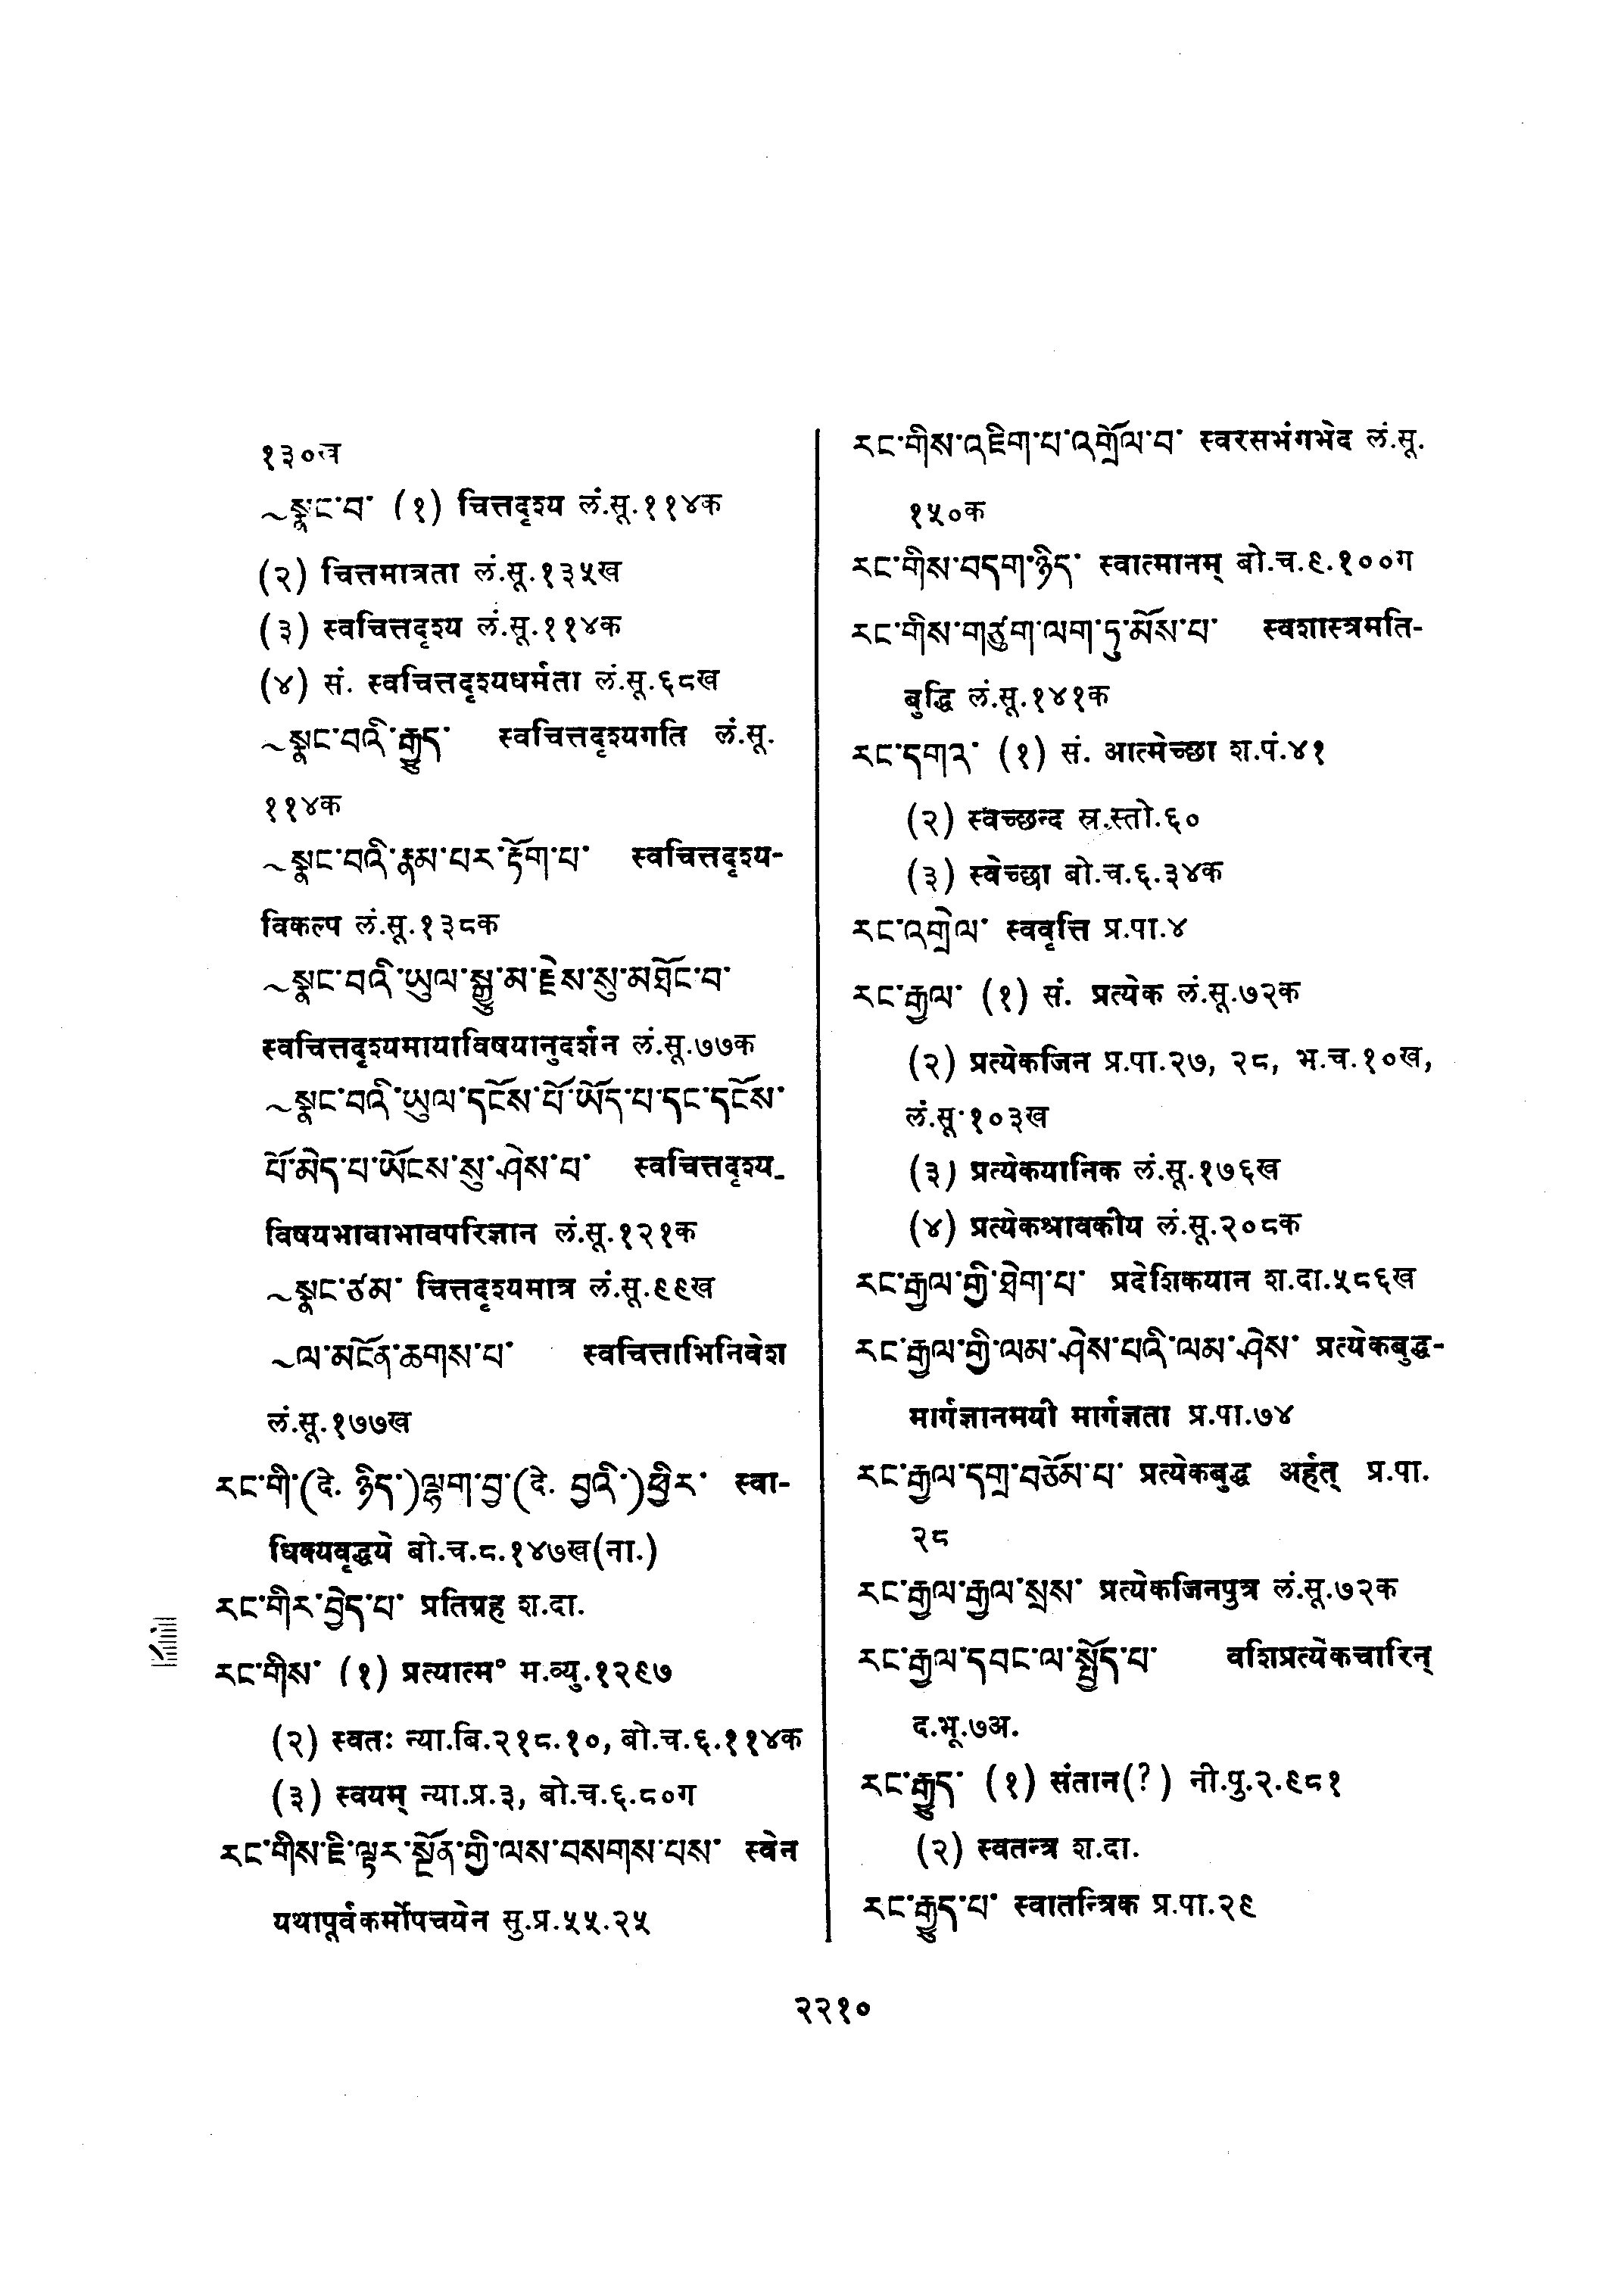 १३०ख
~སྣང་བ་ (१) चित्तदृश्य लं.सू.११४क
(२) चित्तमात्रता लं.सू.१३५ख
(३) स्वचित्तदृश्य लं.सू.११४क
(४) सं. स्वचित्तदृश्यधर्मता लं.सू.६८ख
~སྣང་བའི་རྒྱུད་ स्वचित्तदृश्यगति लं.सू.
११४क
~སྣང་བའི་རྣམ་པར་རྟོག་པ་ स्वचित्तदृश्य-
विकल्प लं.सू.१३८क
~སྣང་བའི་ཡུལ་སྒྱུ་མ་རྗེས་སུ་མཐོང་བ་
स्वचित्तदृश्यमायाविषयानुदर्शन लं.सू.७७क
~སྣང་བའི་ཡུལ་དངོས་པོ་ཡོད་པ་དང་དངོས་
པོ་མེད་པ་ཡོངས་སུ་ཤེས་པ་ स्वचित्तदृश्य-
विषयभावाभावपरिज्ञान लं.सू.१२१क
~སྣང་ཙམ་ चित्तदृश्यमात्र लं.सू.९९ख
~ལ་མངོན་ཆགས་པ་ स्वचित्ताभिनिवेश
लं.सू.१७७ख
རང་གི་(दे. ཉིད་)ལྷག་བྱ་(दे. བྱའི་)ཕྱིར་ स्वा-
धिक्यवृद्धये बो.च.८.१४७ख(ना.)
རང་གིར་བྱེད་པ་ प्रतिग्रह श.दा.
རང་གིས་ (१) प्रत्यात्म° म.व्यु.१२९७
(२) स्वतः न्या.बि.२१८.१०, बो.च.६.११४क
(३) स्वयम् न्या.प्र.३, बो.च.६.८०ग
རང་གིས་ཇི་ལྟར་སྔོན་གྱི་ལས་བསགས་པས་ स्वेन
यथापूर्वकर्मोपचयेन सु.प्र.५५.२५
རང་གིས་འཇིག་པ་འགྲོལ་བ་ स्वरसभंगभेद लं.सू.
१५०क
རང་གིས་བདག་ཉིད་ स्वात्मानम् बो.च.९.१००ग
རང་གིས་གཙུག་ལག་ཏུ་མོས་པ་ स्वशास्त्रमति-
बुद्धि लं.सू.१४१क
རང་དགར་ (१) सं. आत्मेच्छा श.पं.४१
(२) स्वच्छन्द स्र.स्तो.६०
(३) स्वेच्छा बो.च.६.३४क
རང་འགྲེལ་ स्ववृत्ति प्र.पा.४
རང་རྒྱལ་ (१) सं. प्रत्येक लं.सू.७२क
(२) प्रत्येकजिन प्र.पा.२७, २८, भ.च.१०ख,
लं.सू.१०३ख
(३) प्रत्येकयानिक लं.सू.१७६ख
(४) प्रत्येकश्रावकीय लं.सू.२०८क
རང་རྒྱལ་གྱི་ཐེག་པ་ प्रदेशिकयान श.दा.५८६ख
རང་རྒྱལ་གྱི་ལམ་ཤེས་པའི་ལམ་ཤེས་ प्रत्येकबुद्ध-
मार्गज्ञानमयी मार्गज्ञता प्र.पा.७४
རང་རྒྱལ་དགྲ་བཅོམ་པ་ प्रत्येकबुद्ध अर्हत् प्र.पा.
२८
རང་རྒྱལ་རྒྱལ་སྲས་ प्रत्येकजिनपुत्र लं.सू.७२क
རང་རྒྱལ་དབང་ལ་སྤྱོད་པ་ वशिप्रत्येकचारिन्
द.भू.७अ.
རང་རྒྱུད་ (१) संतान(?) नी.पु.२.९८१
(२) स्वतन्त्र श.दा.
རང་རྒྱུད་པ་ स्वातन्त्रिक प्र.पा.२९
२२१०